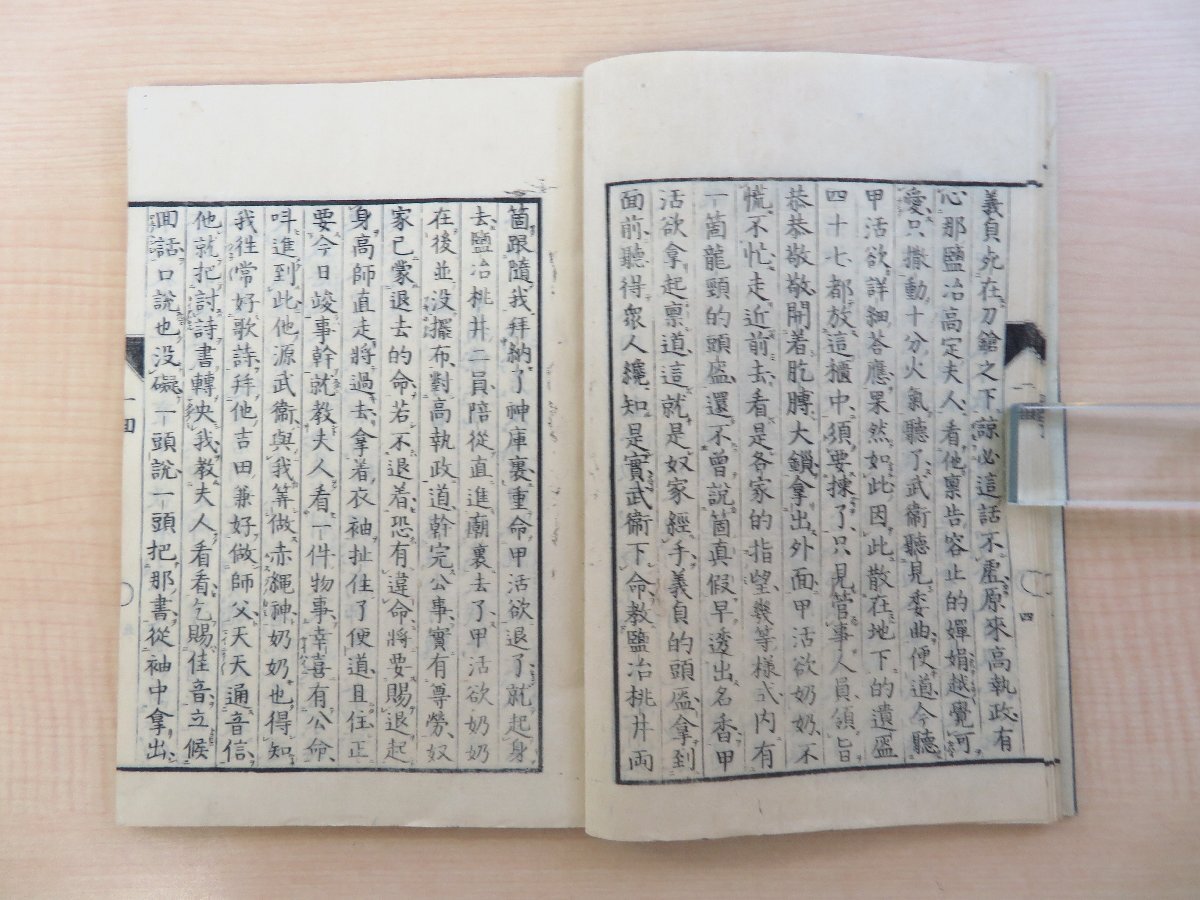 義貞死在刀鎗之下諒必這話不虛原來高執政有
心那鹽冶高定夫人看他禀告容止的嬋娟越覺可
愛只撒動十分火氣聽了武衞聽見委曲便道今聽
甲活欲詳細答應果然如此因此散在地下的遺盔
四十七都放這櫃中須要揀了只見管事人員領旨
恭恭敬敬開着肐膊大鎖拿出外面甲活欲奶奶不
慌不忙走近前去看是各家的指望幾等樣式内有
一箇龍頭的頭盔還不曾說箇真假早透出名香甲
活欲拿起禀道這就是奴家經手義貞的頭盔拿到
面前聽得衆人纔知是實武衞下命教鹽冶桃井兩
四
箇跟隨我拜納了神庫裏重命甲活欲退了就起身
去鹽冶桃井二員陪從直進廟裏去了甲活欲奶奶
在後並没擺布對高執政道幹完公事實有尊勞奴
家已蒙退去的命若不退着恐有違命將要賜退起
身高師直走將過去拿着衣袖扯住了便道且住正
要今日峻事幹就教夫人看一件物事幸喜有公命
呌進到此他源武衞與我筭做赤繩神奶奶也得知
我徃常好歌詩拜他吉田兼好做師父天天通音信
他就把討詩書轉央我教夫人看看乞賜佳音立候
囬話口說也没礙一頭說一頭把那書從袖中拿出
四